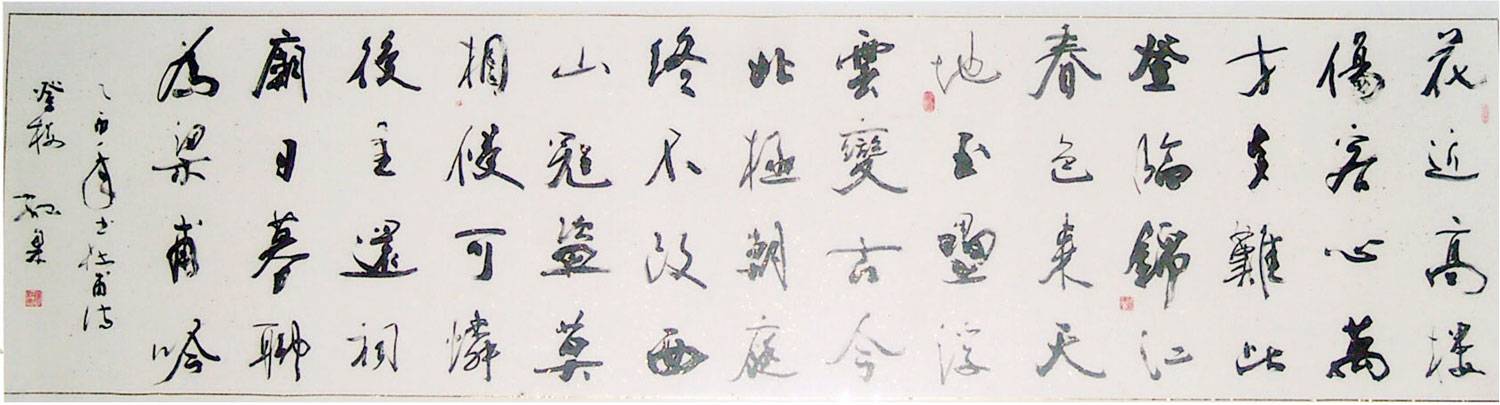 花近高楼
傷客心萬
方多難此
登臨錦江
春色来天
地玉壘浮
雲變古今
北極朝庭
终不改西
山寇盜莫
相侵可憐
後主還祠
廟日暮聊
為梁甫吟
乙酉年书杜甫诗
登楼